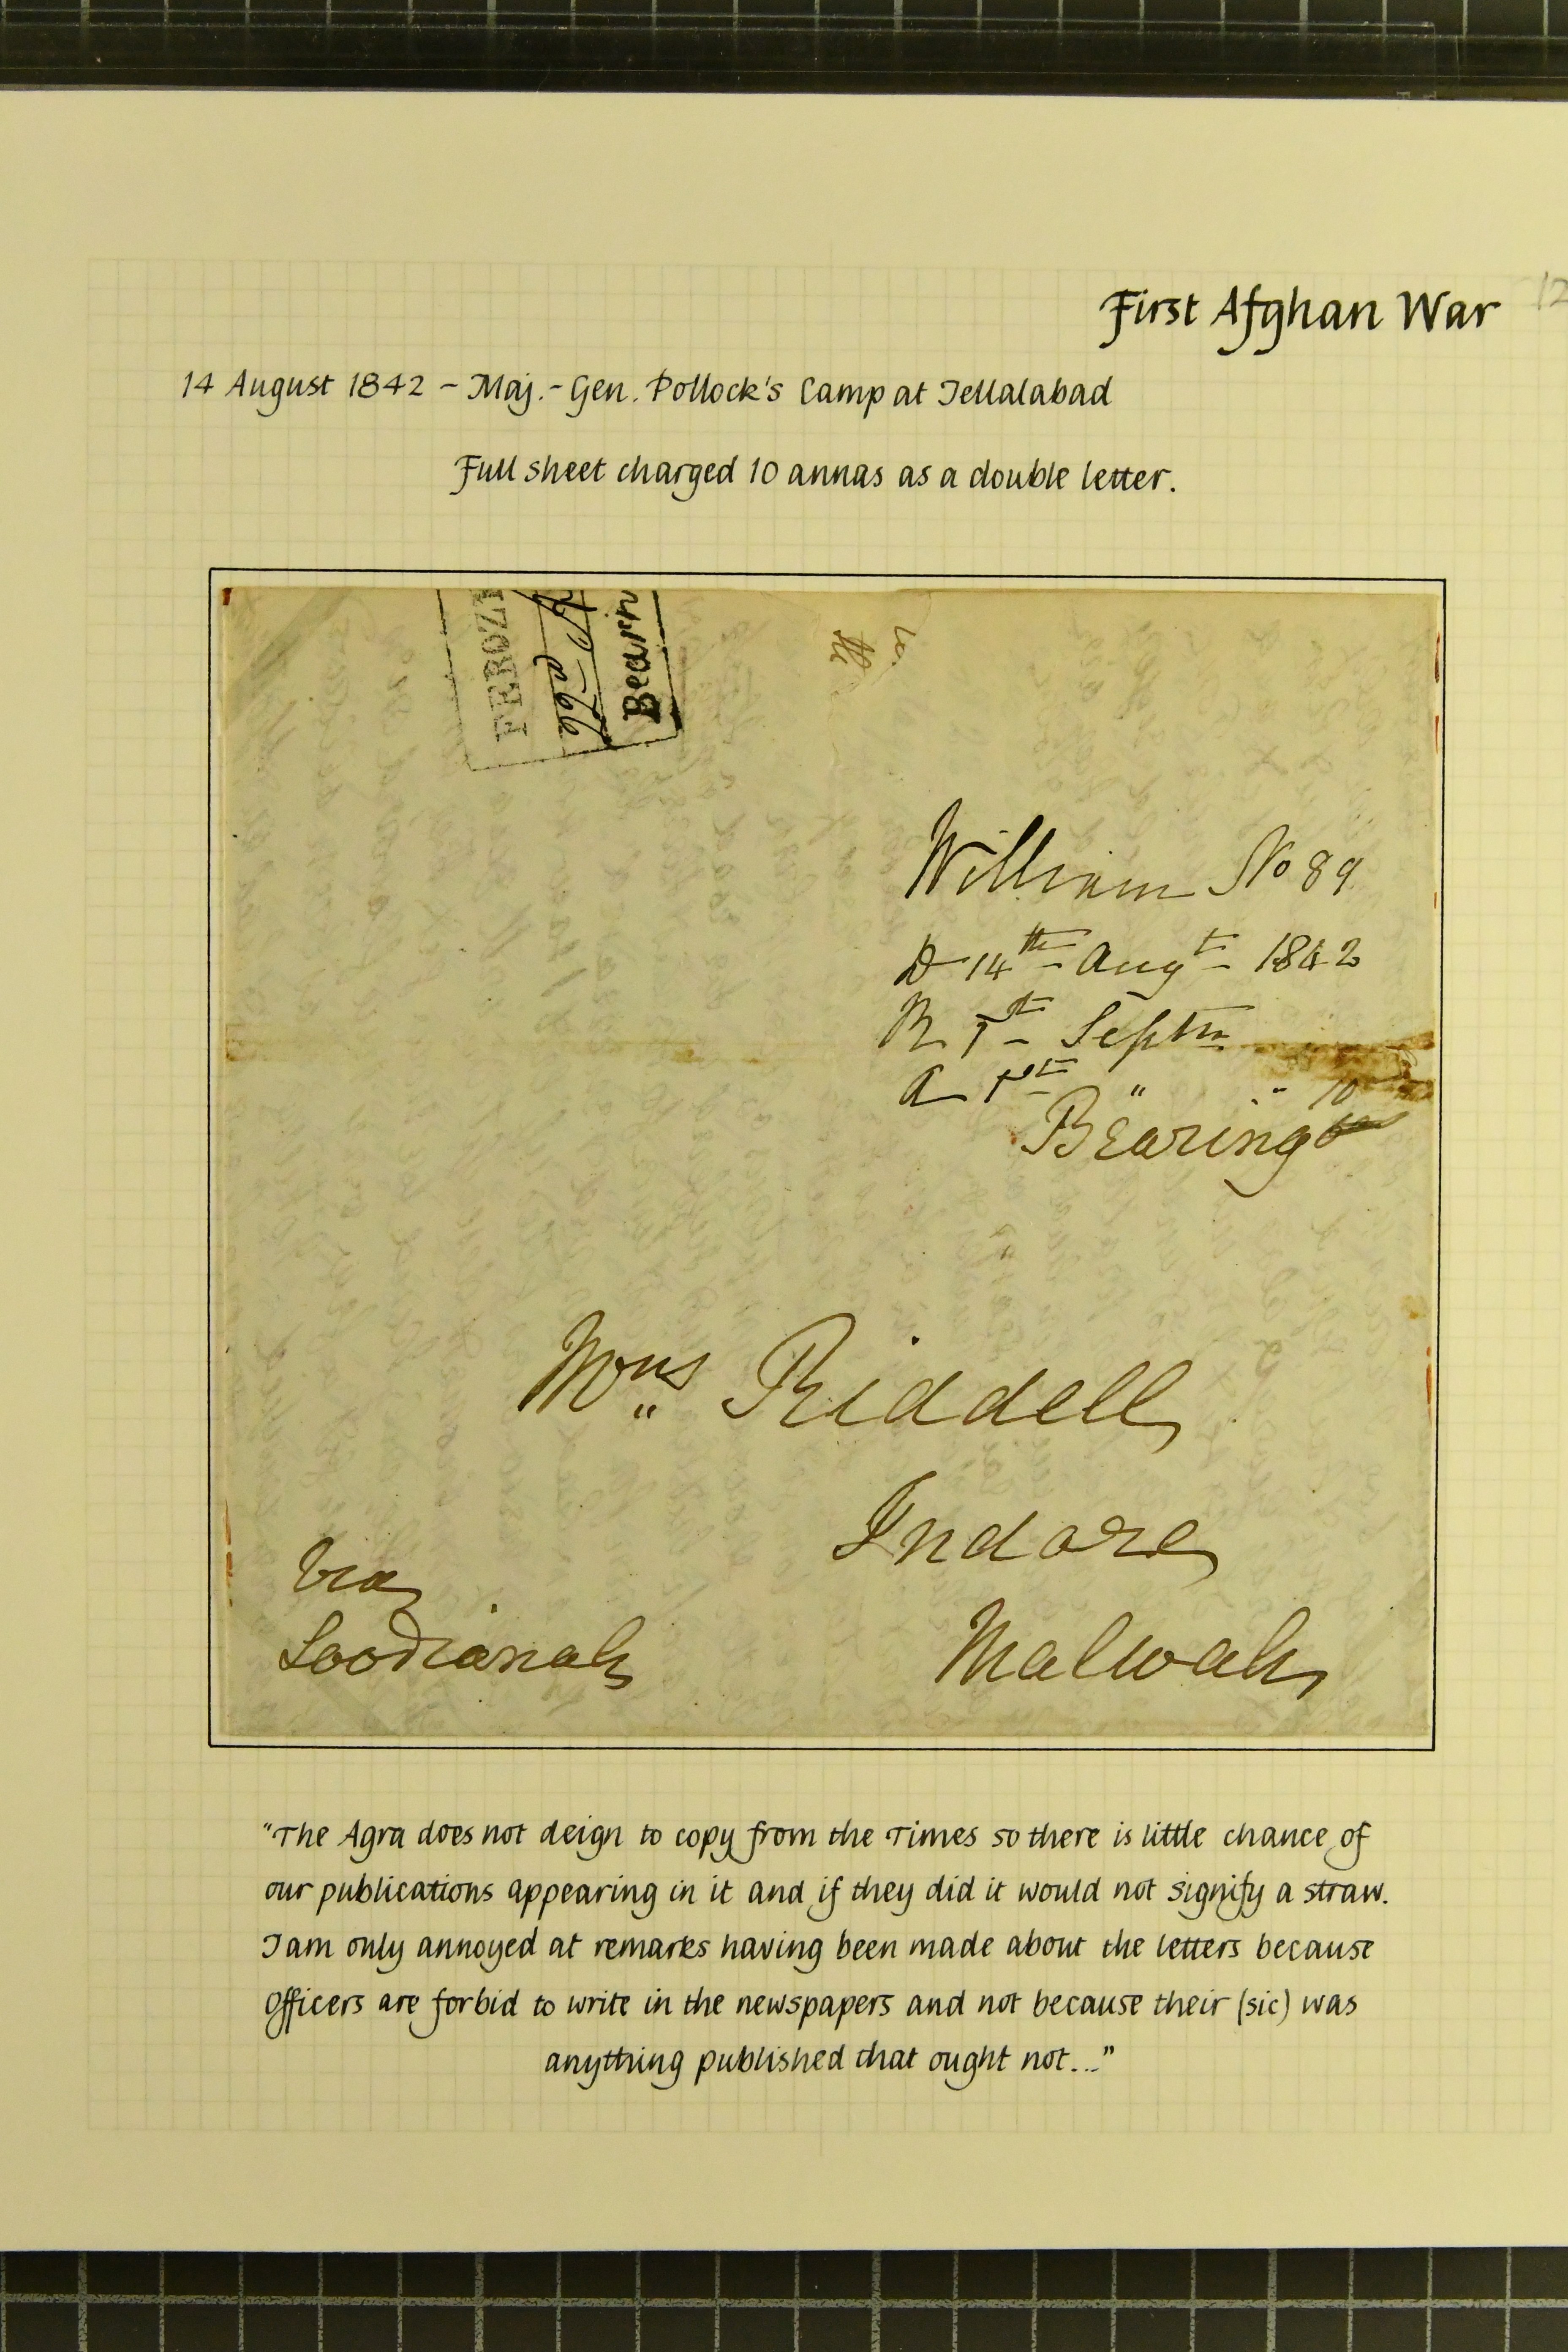 First Afghan War
12
14 August 1842 - Maj.-Gen. Pollock's Camp at Jellalabad
Full sheet charged 10 annas as a double letter.
FEROZ
Bearn
William No 89
D 14th Augt 1842
R 1st Septr
A 1st " "
10
Bearing
Mrs Riddell
Indore
Malwah
Via
Loodianah
"The Agra does not deign to copy from the Times so there is little chance of
our publications appearing in it and if they did it would not signify a straw.
I am only annoyed at remarks having been made about the letters because
officers are forbid to write in the newspapers and not because their (sic) was
anything published that ought not..."